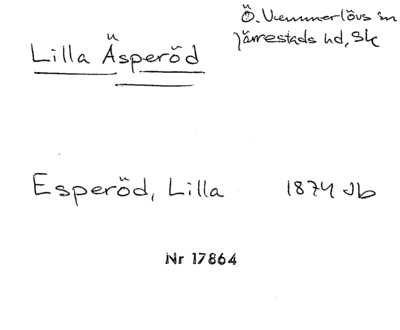 Ö. Vemmerlövs sn
Järrestads hd, Sk
Lilla Äsperöd
Esperöd, Lilla 1874 Jb
Nr 17864